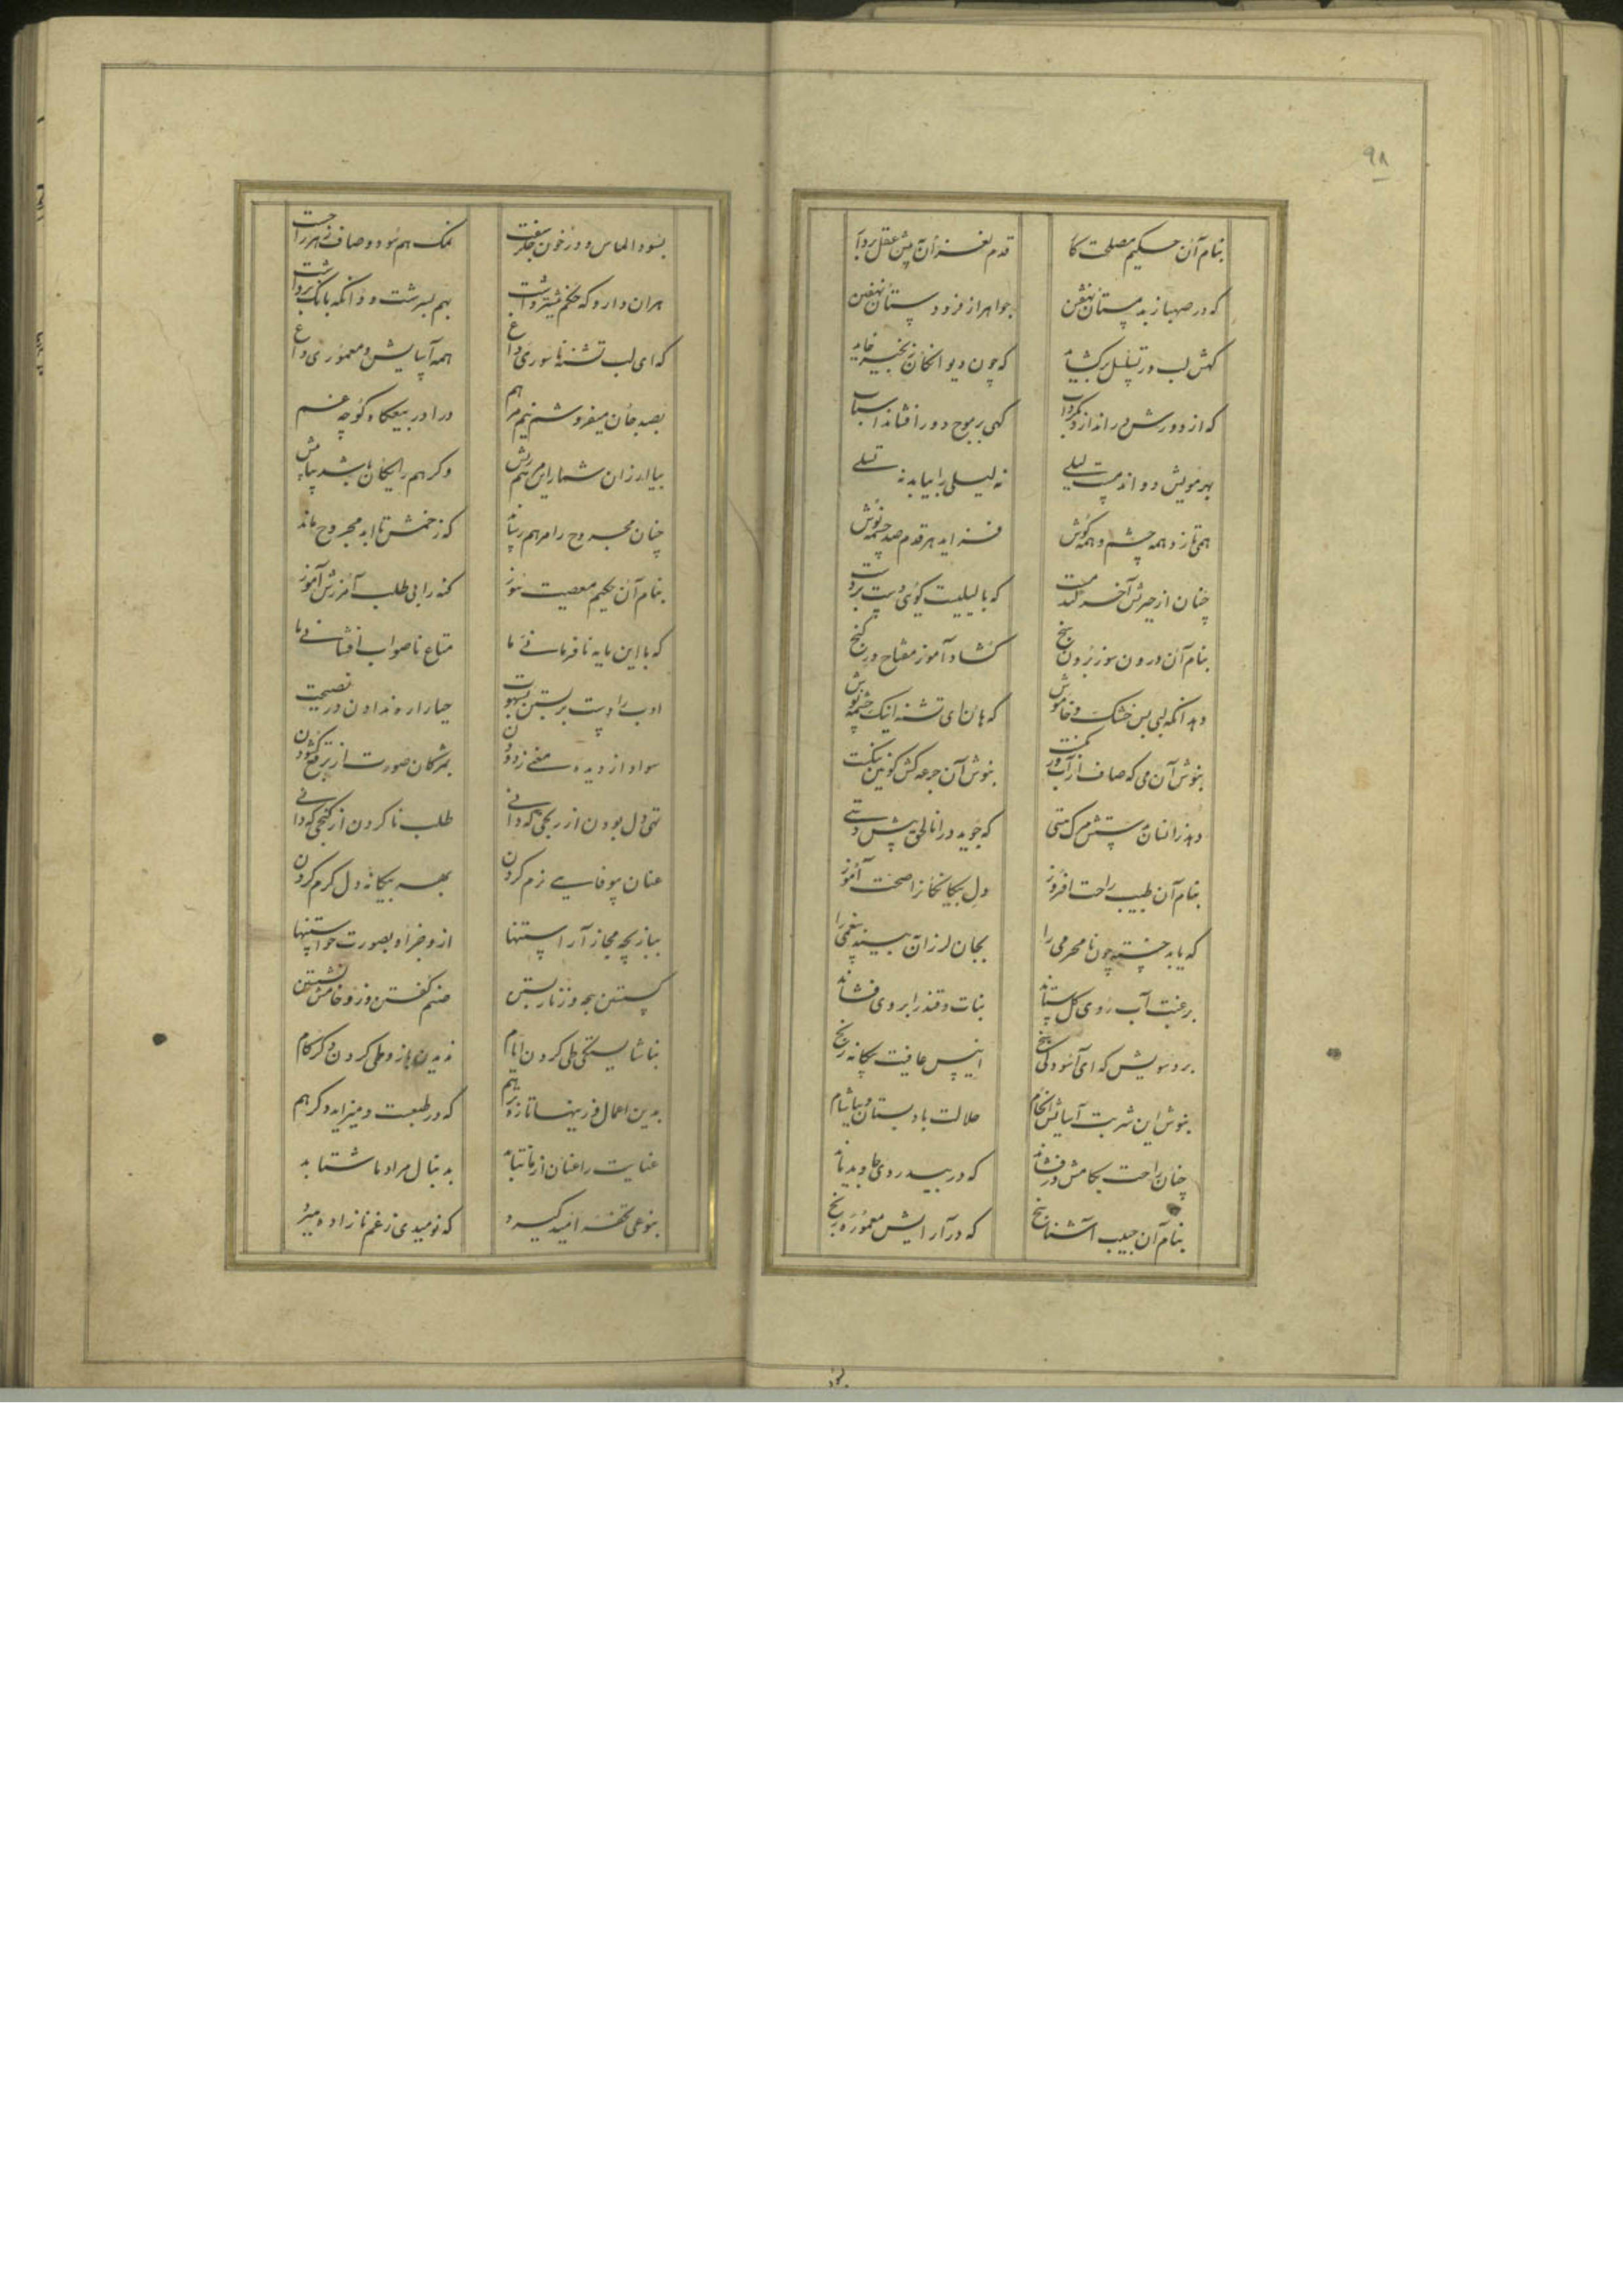 ۹۸
بنام آن حکیم مصلحت کار قدم لغزان پیش عقل بردار
که در صهبا زند مستان جواهر از فرود دستان
گهش لب در تسلسل برکشاید که چون دیوانگان زنجیر خاید
که از دورش در اندازد بگرداب گهی بر موج دور افشاند اسباب
بهر مویش دواند مست لیلی نه لیلی را بیابد نه تسلی
همی تازد همه چشم و همه گوش فزاید هر قدم صد چشمه نوش
چنان از حیرتش آخر کند مست که با لیلیت گوئی دست بر دست
بنام آن درون سوز برون سنج گشاد آموز مفتاح در گنج
دهد آنگه لبی بس خشک و خاموش که هان ای تشنه اینک چشمه نوش
بنوش آن می که صاف از آب بنوش آن جرعه کش کونین
دهد زانسانش مستی که جوید در انا الحق پیش دستی
بنام آن طبیب راحت افروز دل بیگانگان را صحت آموز
که یابد خسته چون نامحرمی را بجان لرزان ببیند بیغمی را
برغبت آب روی گل ستاند نبات و قند را بر وی فشاند
برد سویش که ای آسودگی سنج انیس عافیت بیگانه رنج
بنوش این شربت آسایش انجام حلالت باد بستان و بیاشام
چنان راحت بکامش در فشاند که در بیدردی جاوید ماند
بنام آن حبیب آشنا سنج که در آرایش معموره رنج
بسود الماس و در خون جگر سفت نمک هم سود و صاف زهر را
هر آن دارو که حکم نیشتر داشت بهم بسرشت و آنگه بانگ برداشت
که ای لب تشنه ناسوری داغ همه آسایش و معموری داغ
بصد جان میفروشم نیم مرهم درآ در بیعگاه کوچه غم
بیا ارزان شمار این مرهم ریش وگر هم رایگان باشد
چنان مجروح را مرهم رساند که زخمش تا ابد مجروح ماند
بنام آن حکیم معصیت سوز گنه را بی طلب آمرزش آموز
که با این مایه نافرمانی ما متاع ناصواب افشانی ما
ادب را دست بر بستن بشهوت حیا را ره ندادن در نصیحت
سواد از دیده معنی زدودن بمژگان صورت از برقع گشودن
تهی دل بودن از رنجی که دانی طلب ناکردن از گنجی که دانی
عنان بیوفایی نرم کردن بهر بیگانه دل گرم کردن
ببازیچه مجاز آراستنها ازو جز او بصورت خواستنها
گسستن سبحه و زنار بستن صنم گفتن وزو خامش نشستن
بناشایستگی طی کردن ایام ندیدن باز و طی کردن دگر گام
بدین اعمال و زینها تازه تر هم که در طبعست و میزاید دگر هم
عنایت را عنان از ما نتابد بدنبال مراد ما شتابد
بنوعی تحفه امید گیرد که نومیدی ز غم نازاده میرد